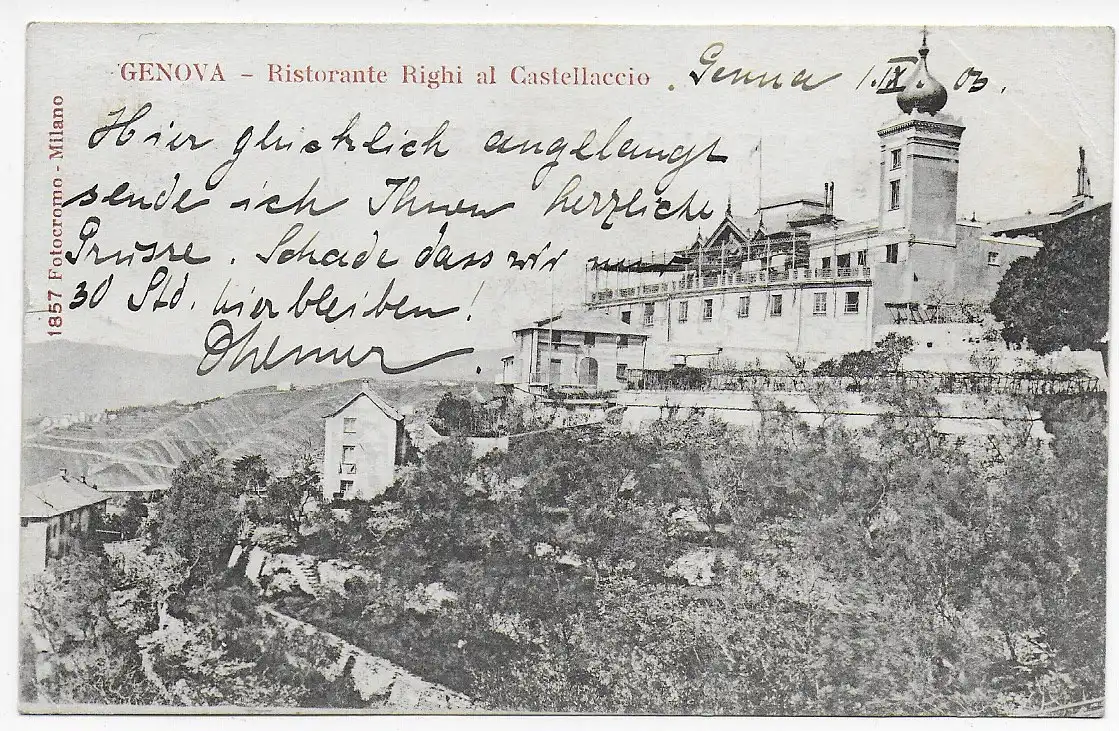 GENOVA – Ristorante Righi al Castellaccio
Genua 1.IX.03.
1857 Fotocromo - Milano
Hier glücklich angelangt
sende ich Ihnen herzliche
Grüsse. Schade dass wir nur
30 Std. hierbleiben!